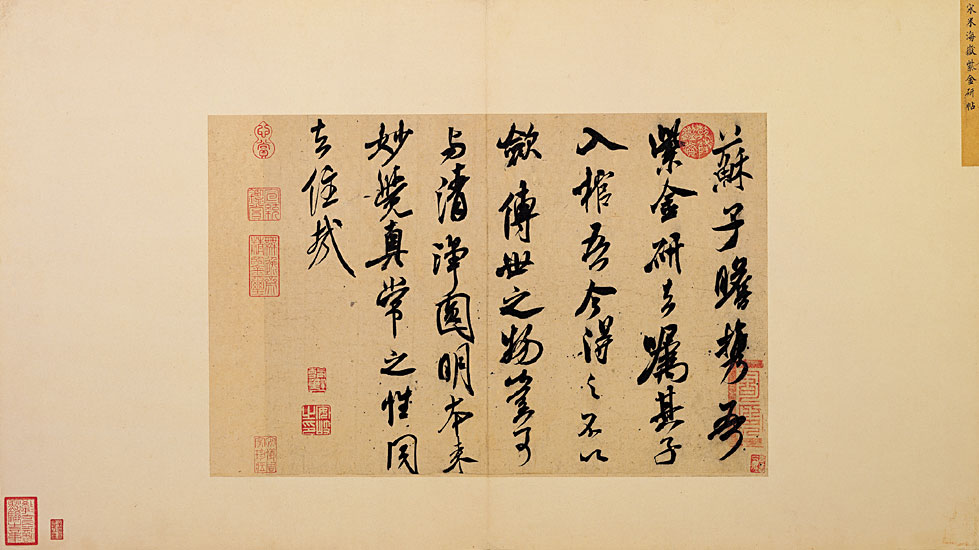 宋米海嶽紫金研帖
蘇子瞻携吾
紫金研去嘱其子
入棺吾今得之不以
歛傳世之物豈可
与清淨圓明本來
妙覺真常之性同
去住哉